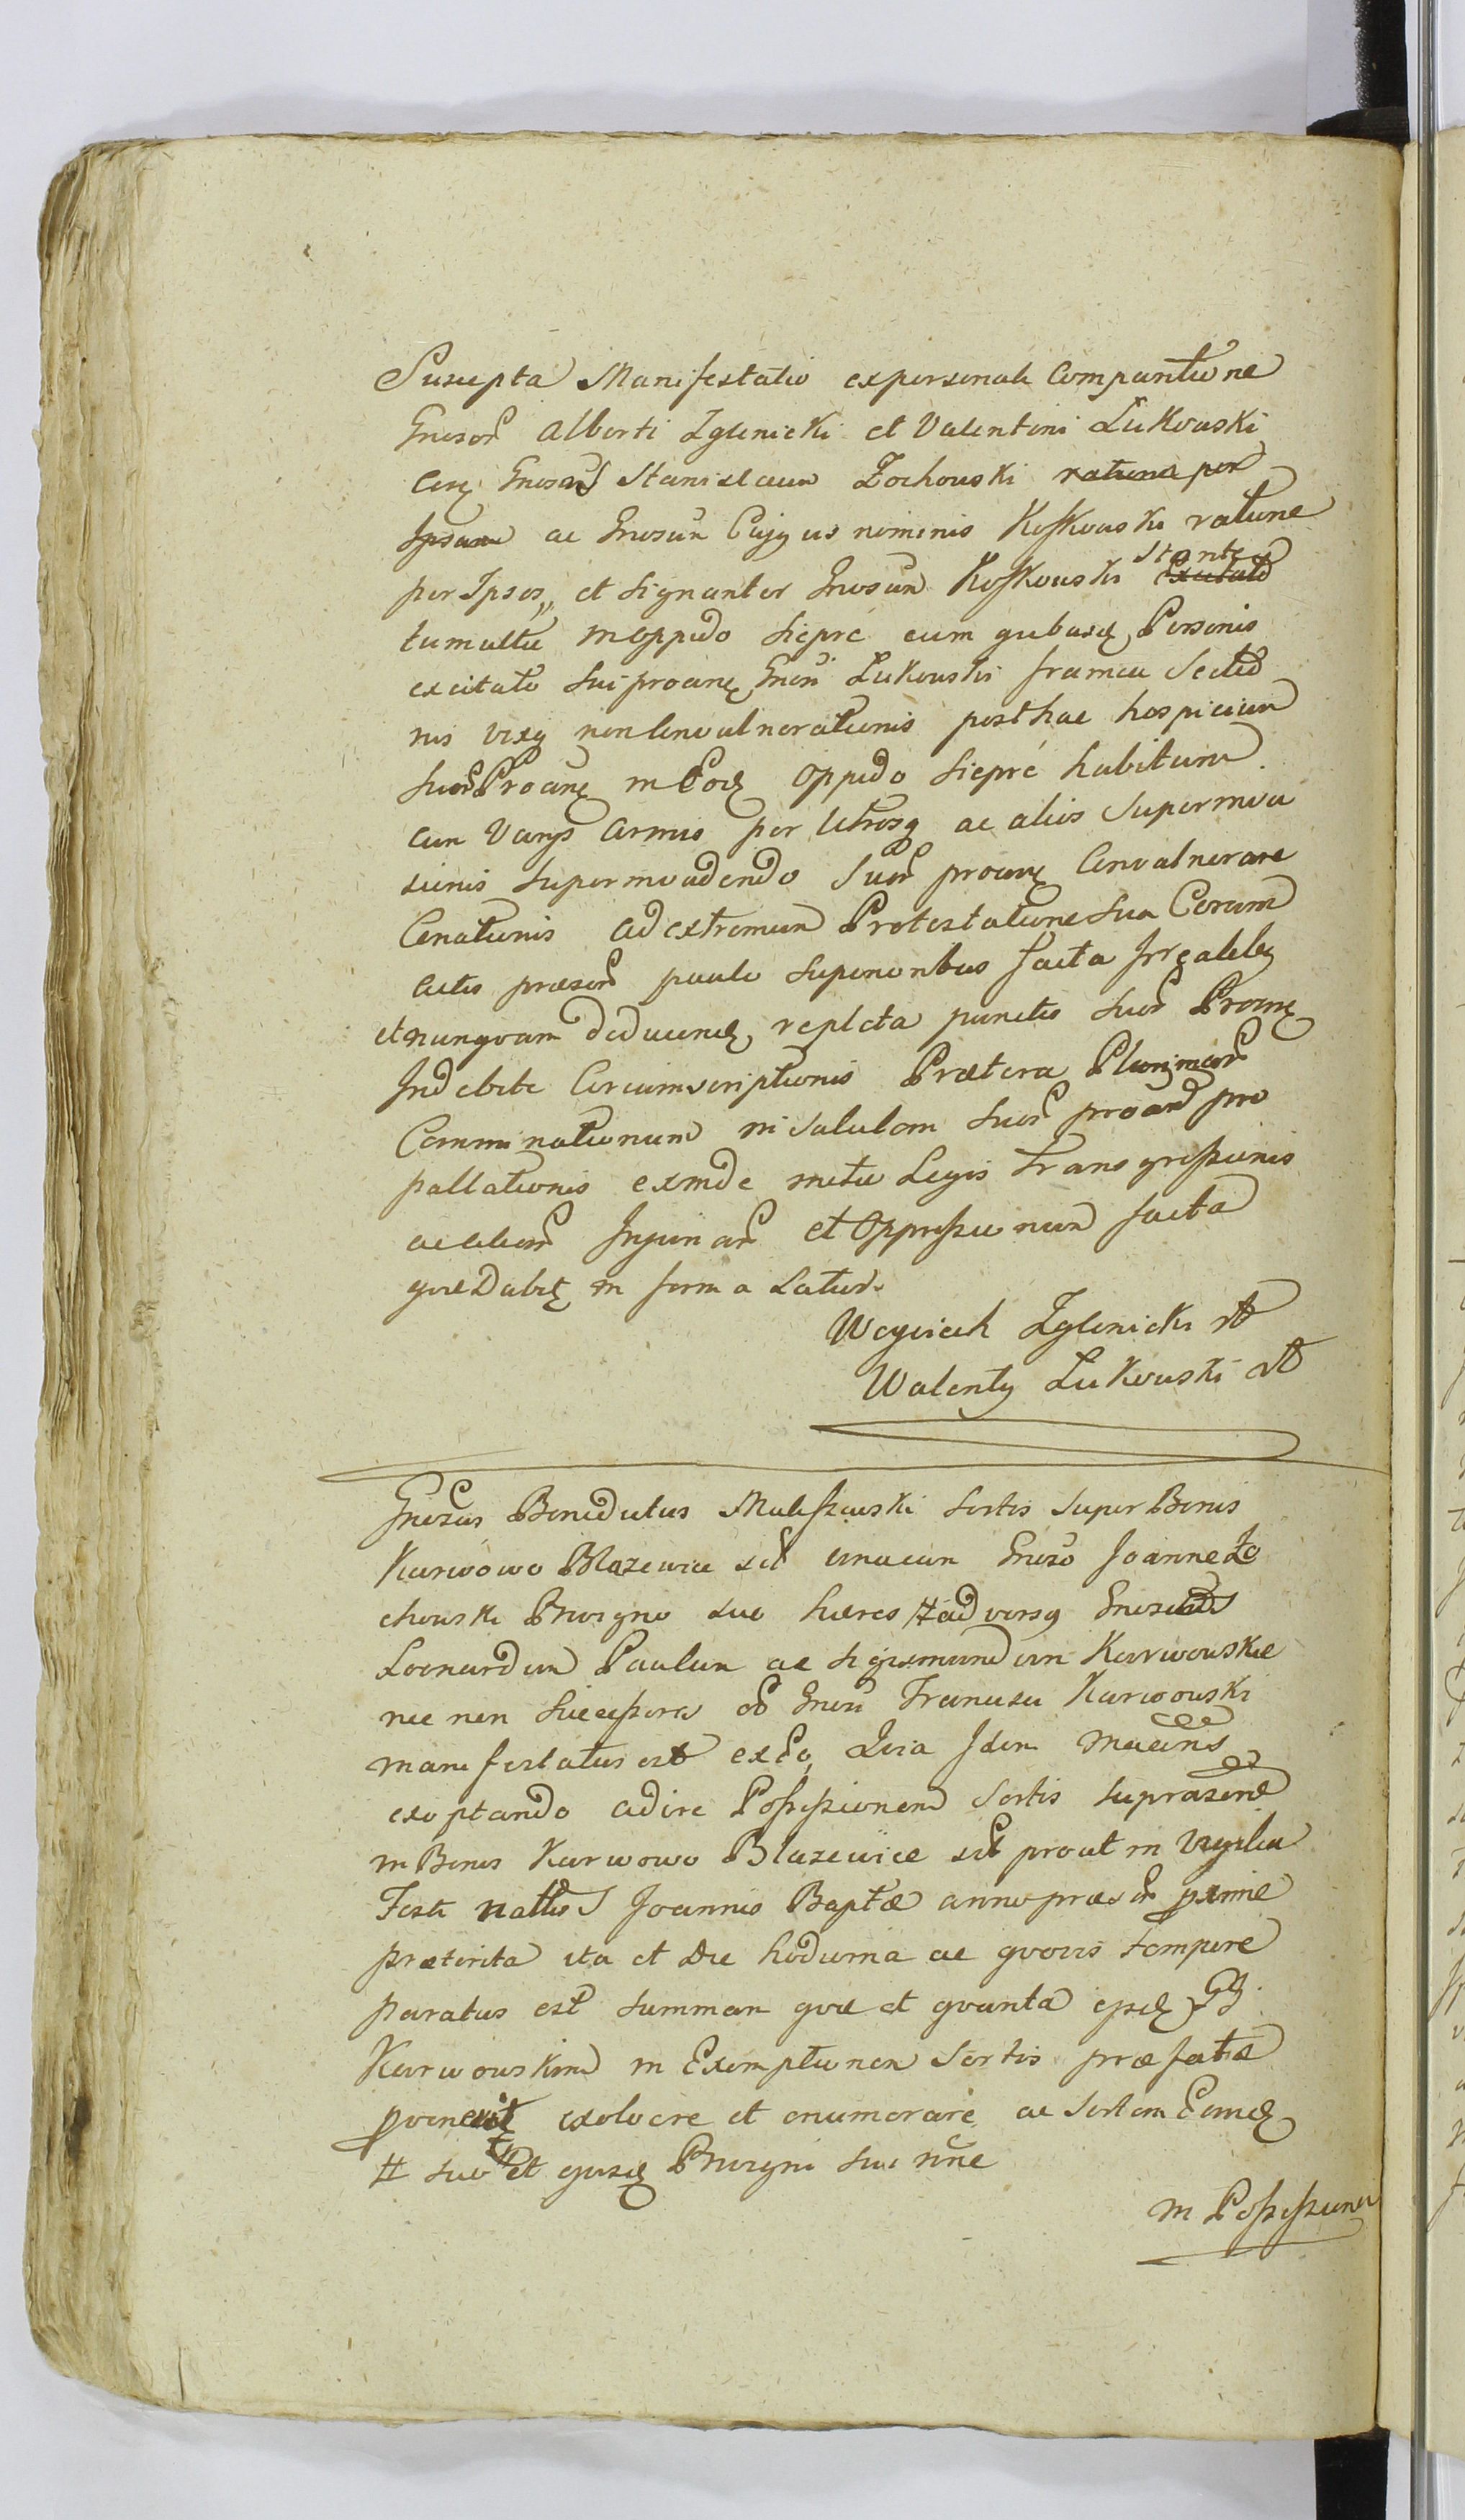 Suscepta Manifestatio expersonali Comparitione
Gnesor Alberti Zglinicki et Valentini Lukowski
Cen Gnosum Stanislaum Zochowski ratione per
Ipsum ac Gnosum Cujq us nominis Koskowski ratione
per Ipsos et signanter Gnosum Koskowski stante Excitato
tumultu in Oppido Siepre cum qubusd Personis
excitato Sui procinc Gnosi Lukowski framea Sectio
nis vixq non Convulnerationis posthac hospicium
Suor Procinc in Eod Oppido Siepre habitum
cum Varys Armis per Utrosq ac alios Superinva
sionis superinvadendo Suor procinc Convulnerare
Conationis ad extremum Protestatione sua Coram
actis praesen paulo superioribus facta
et nunqvam deducend repleta punctis suor Procinc
Indebite Circumscriptionis Praeterea Plurimar
Comminationum in Salutem suor procin pro
pallationis exinde metu Legis transgressionis
ac alior Injuriar et Oppressionum facta
qvae Dabit in forma Latiori
Woyciech Zglinicki
Walenty Lukowski
Gnosus Benedictus Maleszewski sortis super Bonis
Karwowo Blazewice sit unacum Gnoso Joanne Zo
chowski Privigno suo haeres # adversq Gnosos
Leonardum Paulum ac Sigismundum Karwowskie
nec non Successores olim Gnosi Francisci Karwowski
manifestatus est ex Eo Quia Idem
exoptando adire Possessionem sortis
in Bonis Karwowo Blazewice sit prout in Vigilia
Festi Nattis S Joannis Baptae anno praesen pxime
praeterita ita et Die hodierna ac qvovis tempore
paratus est summam qvae et qvanta ipsd GG
Karwowskim in Exemptionem sortis praefatae
pvenerit exolvere et enumerare ac sortem Eand
# suo et ejusd Privigni sui nne
in Possessionem